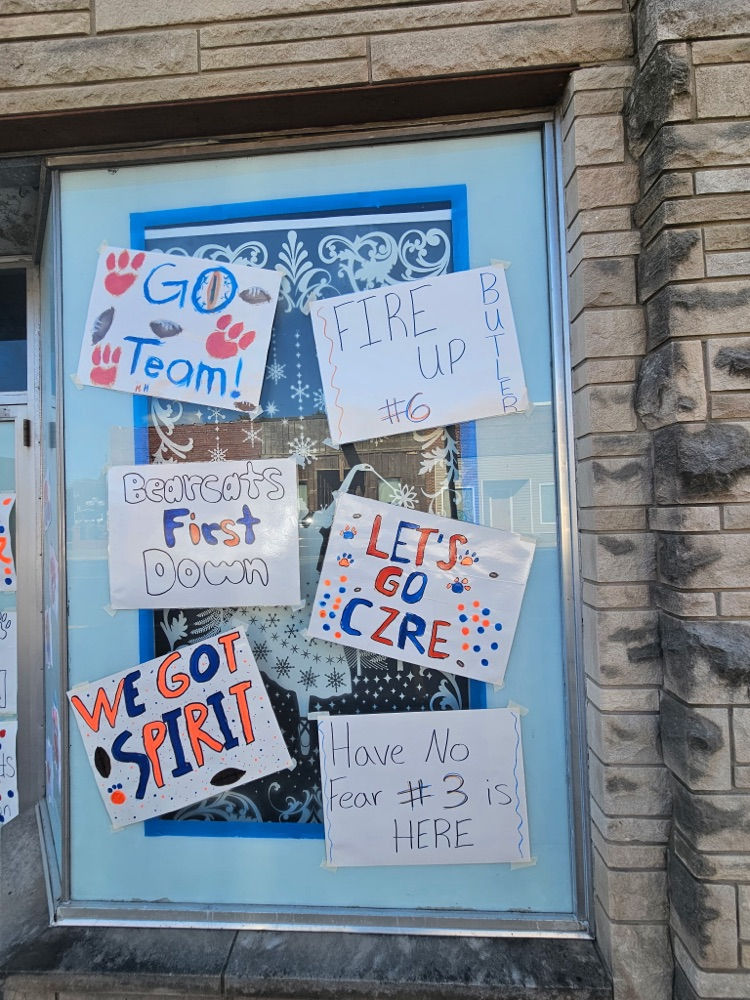 GO
Team!
FIRE
UP
#6
BUTLER
BEARCATS
First
Down
LET'S
GO
CZRE
WE GOT
SPIRIT
Have No
Fear #3 is
HERE